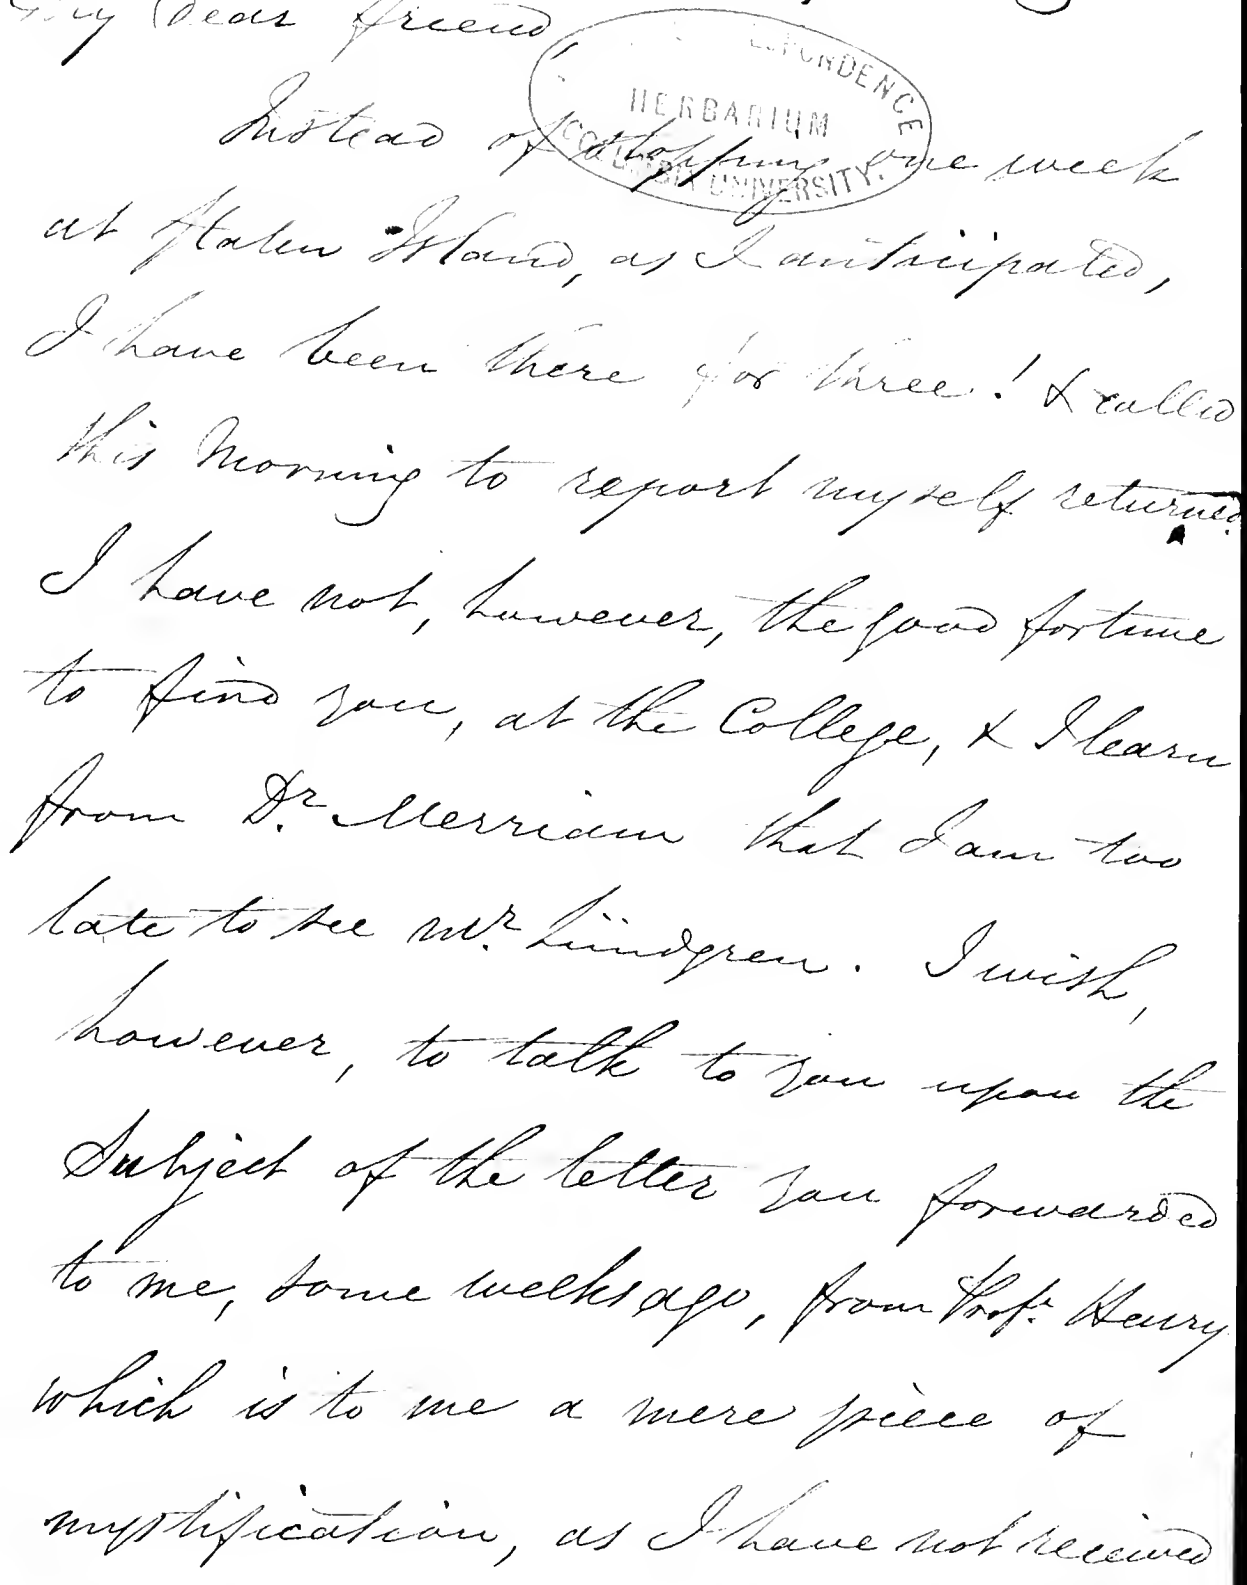 My Dear friend,
CORRESPONDENCE
HERBARIUM
COLUMBIA UNIVERSITY.
Instead of stopping one week
at Staten Island, as I anticipated,
I have been there for three! & called
this Morning to report myself returned.
I have not, however, the good fortune
to find you, at the College, & I learn
from Dr. Merriam that I am too
late to see Mr. Lündgren. I wish,
however, to talk to you upon the
Subject of the letter you forwarded
to me, some weeks ago, from Profr. Henry
which is to me a mere piece of
mystification, as I have not received